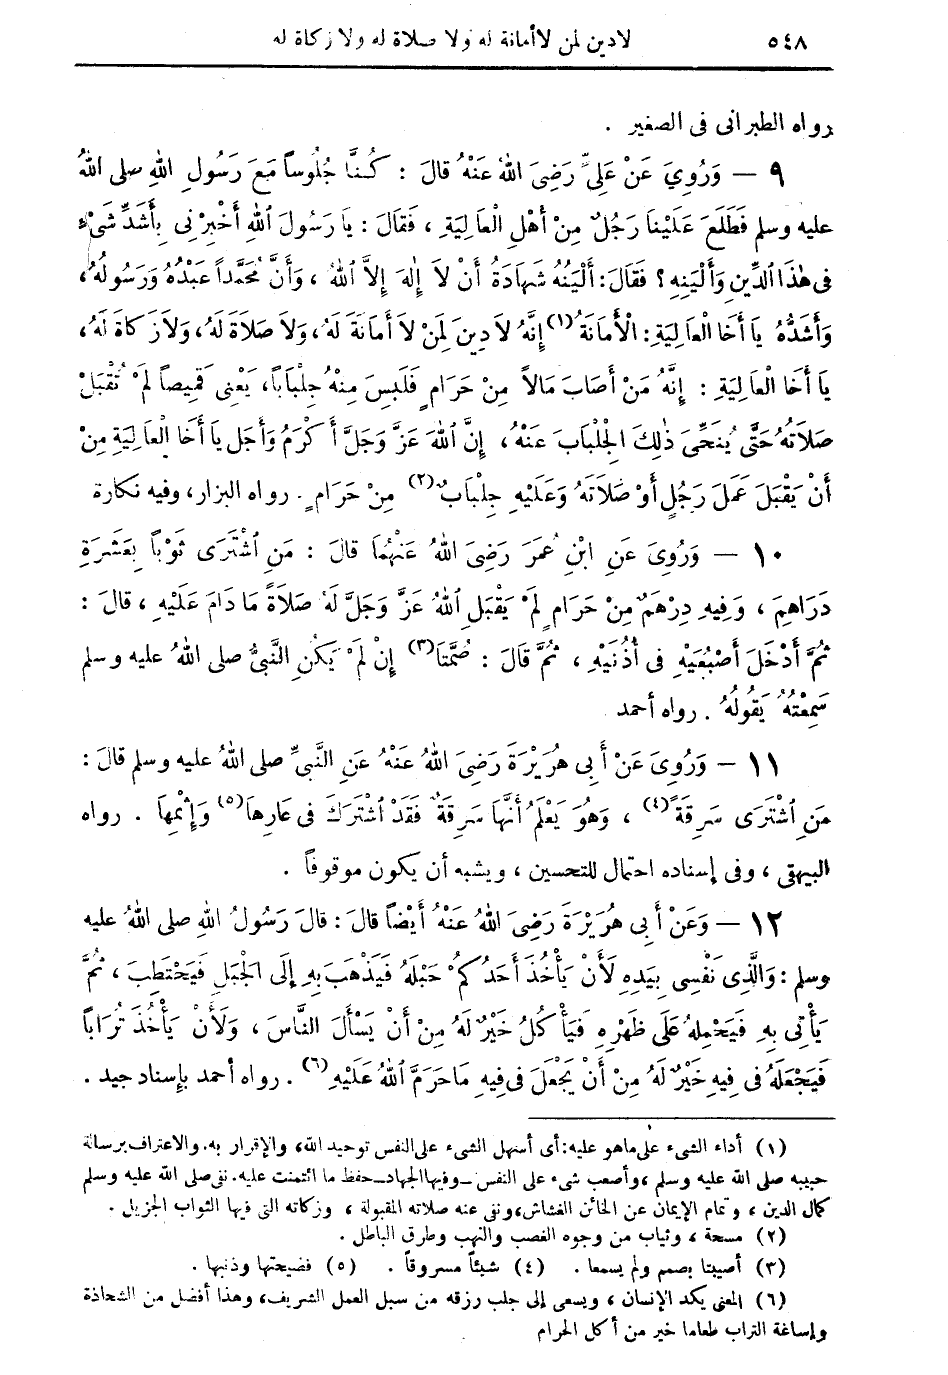 ٥٤٨ لا دين لمن لا أمانة له ولا صلاة له ولا زكاة له
رواه الطبرانى فى الصغير .
٩ — وَرُوِيَ عَنْ عَلِيٍّ رَضِىَ اللهُ عَنْهُ قالَ : كُنَّا جُلُوساً مَعَ رَسُولِ اللهِ صلى اللهُ
عليه وسلم فَطَلَعَ عَلَيْنَا رَجُلٌ مِنْ أَهْلِ الْعَالِيَةِ ، فَقَالَ : يَا رَسُولَ اللهِ أَخْبِرْنِى بِأَشَدِّ شَىْءٍ
فى هٰذَا الدِّينِ وَأَلْيَنِهِ ؟ فَقَالَ : أَلْيَنُهُ شَهَادَةُ أَنْ لَا إِلٰهَ إِلَّا اللهُ ، وَأَنَّ مُحَمَّداً عَبْدُهُ وَرَسُولُهُ ،
وَأَشَدُّهُ يَا أَخَا الْعَالِيَةِ : الْأَمَانَةُ (١) إِنَّهُ لَا دِينَ لِمَنْ لَا أَمَانَةَ لَهُ ، وَلَا صَلَاةَ لَهُ ، وَلَا زَكَاةَ لَهُ ،
يَا أَخَا الْعَالِيَةِ : إِنَّهُ مَنْ أَصَابَ مَالاً مِنْ حَرَامٍ فَلَبِسَ مِنْهُ جِلْبَاباً ، يَعْنِى قَمِيصاً لَمْ تُقْبَلْ
صَلَاتُهُ حَتَّى يُنَحِّىَ ذٰلِكَ الْجِلْبَابَ عَنْهُ ، إِنَّ اللهَ عَزَّ وَجَلَّ أَكْرَمُ وَأَجَل يَا أَخَا الْعَالِيَةِ مِنْ
أَنْ يَقْبَلَ عَمَلَ رَجُلٍ أَوْ صَلَاتَهُ وَعَلَيْهِ جِلْبَابٌ (٢) مِنْ حَرَامٍ . رواه البزار ، وفيه نكارة
١٠ — وَرُوِىَ عَنِ ابْنِ عُمَرَ رَضِىَ اللهُ عَنْهُمَا قالَ : مَنِ اشْتَرَى ثَوْباً بِعَشَرَةِ
دَرَاهِمَ ، وَفِيهِ دِرْهَمٌ مِنْ حَرَامٍ لَمْ يَقْبَلِ اللهُ عَزَّ وَجَلَّ لَهُ صَلَاةً مَا دَامَ عَلَيْهِ ، قالَ :
ثُمَّ أَدْخَلَ أَصْبُعَيْهِ فى أُذُنَيْهِ ، ثُمَّ قَالَ : صُمَّتَا (٣) إِنْ لَمْ يَكُنِ النَّبِىُّ صلى اللهُ عليه وسلم
سَمِعْتُهُ يَقُولُهُ . رواه أحمد
١١ — وَرُوِىَ عَنْ أَبِى هُرَيْرَةَ رَضِىَ اللهُ عَنْهُ عَنِ النَّبِىِّ صلى اللهُ عليه وسلم قالَ :
مَنِ اشْتَرَى سَرِقَةً (٤) ، وَهُوَ يَعْلَمُ أَنَّهَا سَرِقَةٌ فَقَدْ اشْتَرَكَ فى عَارِهَا (٥) وَإِثْمِهَا . رواه
البيهقى ، وفى إسناده احتمال للتحسين ، ويشبه أن يكون موقوفاً .
١٢ — وَعَنْ أَبِى هُرَيْرَةَ رَضِىَ اللهُ عَنْهُ أَيْضاً قالَ : قالَ رَسُولُ اللهِ صلى اللهُ عليه
وسلم : وَالَّذِى نَفْسِى بِيَدِهِ لَأَنْ يَأْخُذَ أَحَدُكُمْ حَبْلَهُ فَيَذْهَبَ بِهِ إِلَى الْجَبَلِ فَيَحْتَطِبَ ، ثُمَّ
يَأْتِى بِهِ فَيَحْمِلُهُ عَلَى ظَهْرِهِ فَيَأْكُلُ خَيْرٌ لَهُ مِنْ أَنْ يَسْأَلَ النَّاسَ ، وَلَأَنْ يَأْخُذَ تُرَاباً
فَيَجْعَلَهُ فى فِيهِ خَيْرٌ لَهُ مِنْ أَنْ يَجْعَلَ فى فِيهِ مَا حَرَّمَ اللهُ عَلَيْهِ (٦) . رواه أحمد بإسناد جيد .
(١) أداء الشىء على ماهو عليه : أى أسهل الشىء على النفس توحيد الله ، والإقرار به . والاعتراف برسالة
حبيبه صلى الله عليه وسلم ، وأصعب شىء على النفس ــ وفيها الجهاد ــ حفظ ما ائتمنت عليه . نفى صلى الله عليه وسلم
كمال الدين ، وتمام الإيمان عن الخائن الغشاش ، ونفى عنه صلاته المقبولة ، وزكاته التى فيها الثواب الجزيل .
(٢) مسحة ، وثياب من وجوه الغصب والنهب وطرق الباطل .
(٣) أصيبتا بصمم ولم يسمعا . (٤) شيئاً مسروقاً . (٥) فضيحتها وذنبها .
(٦) المعنى يكد الإنسان ، ويسعى إلى جلب رزقه من سبل العمل الشريف ، وهذا أفضل من الشحاذة
وإساغة التراب طعاما خير من أكل الحرام